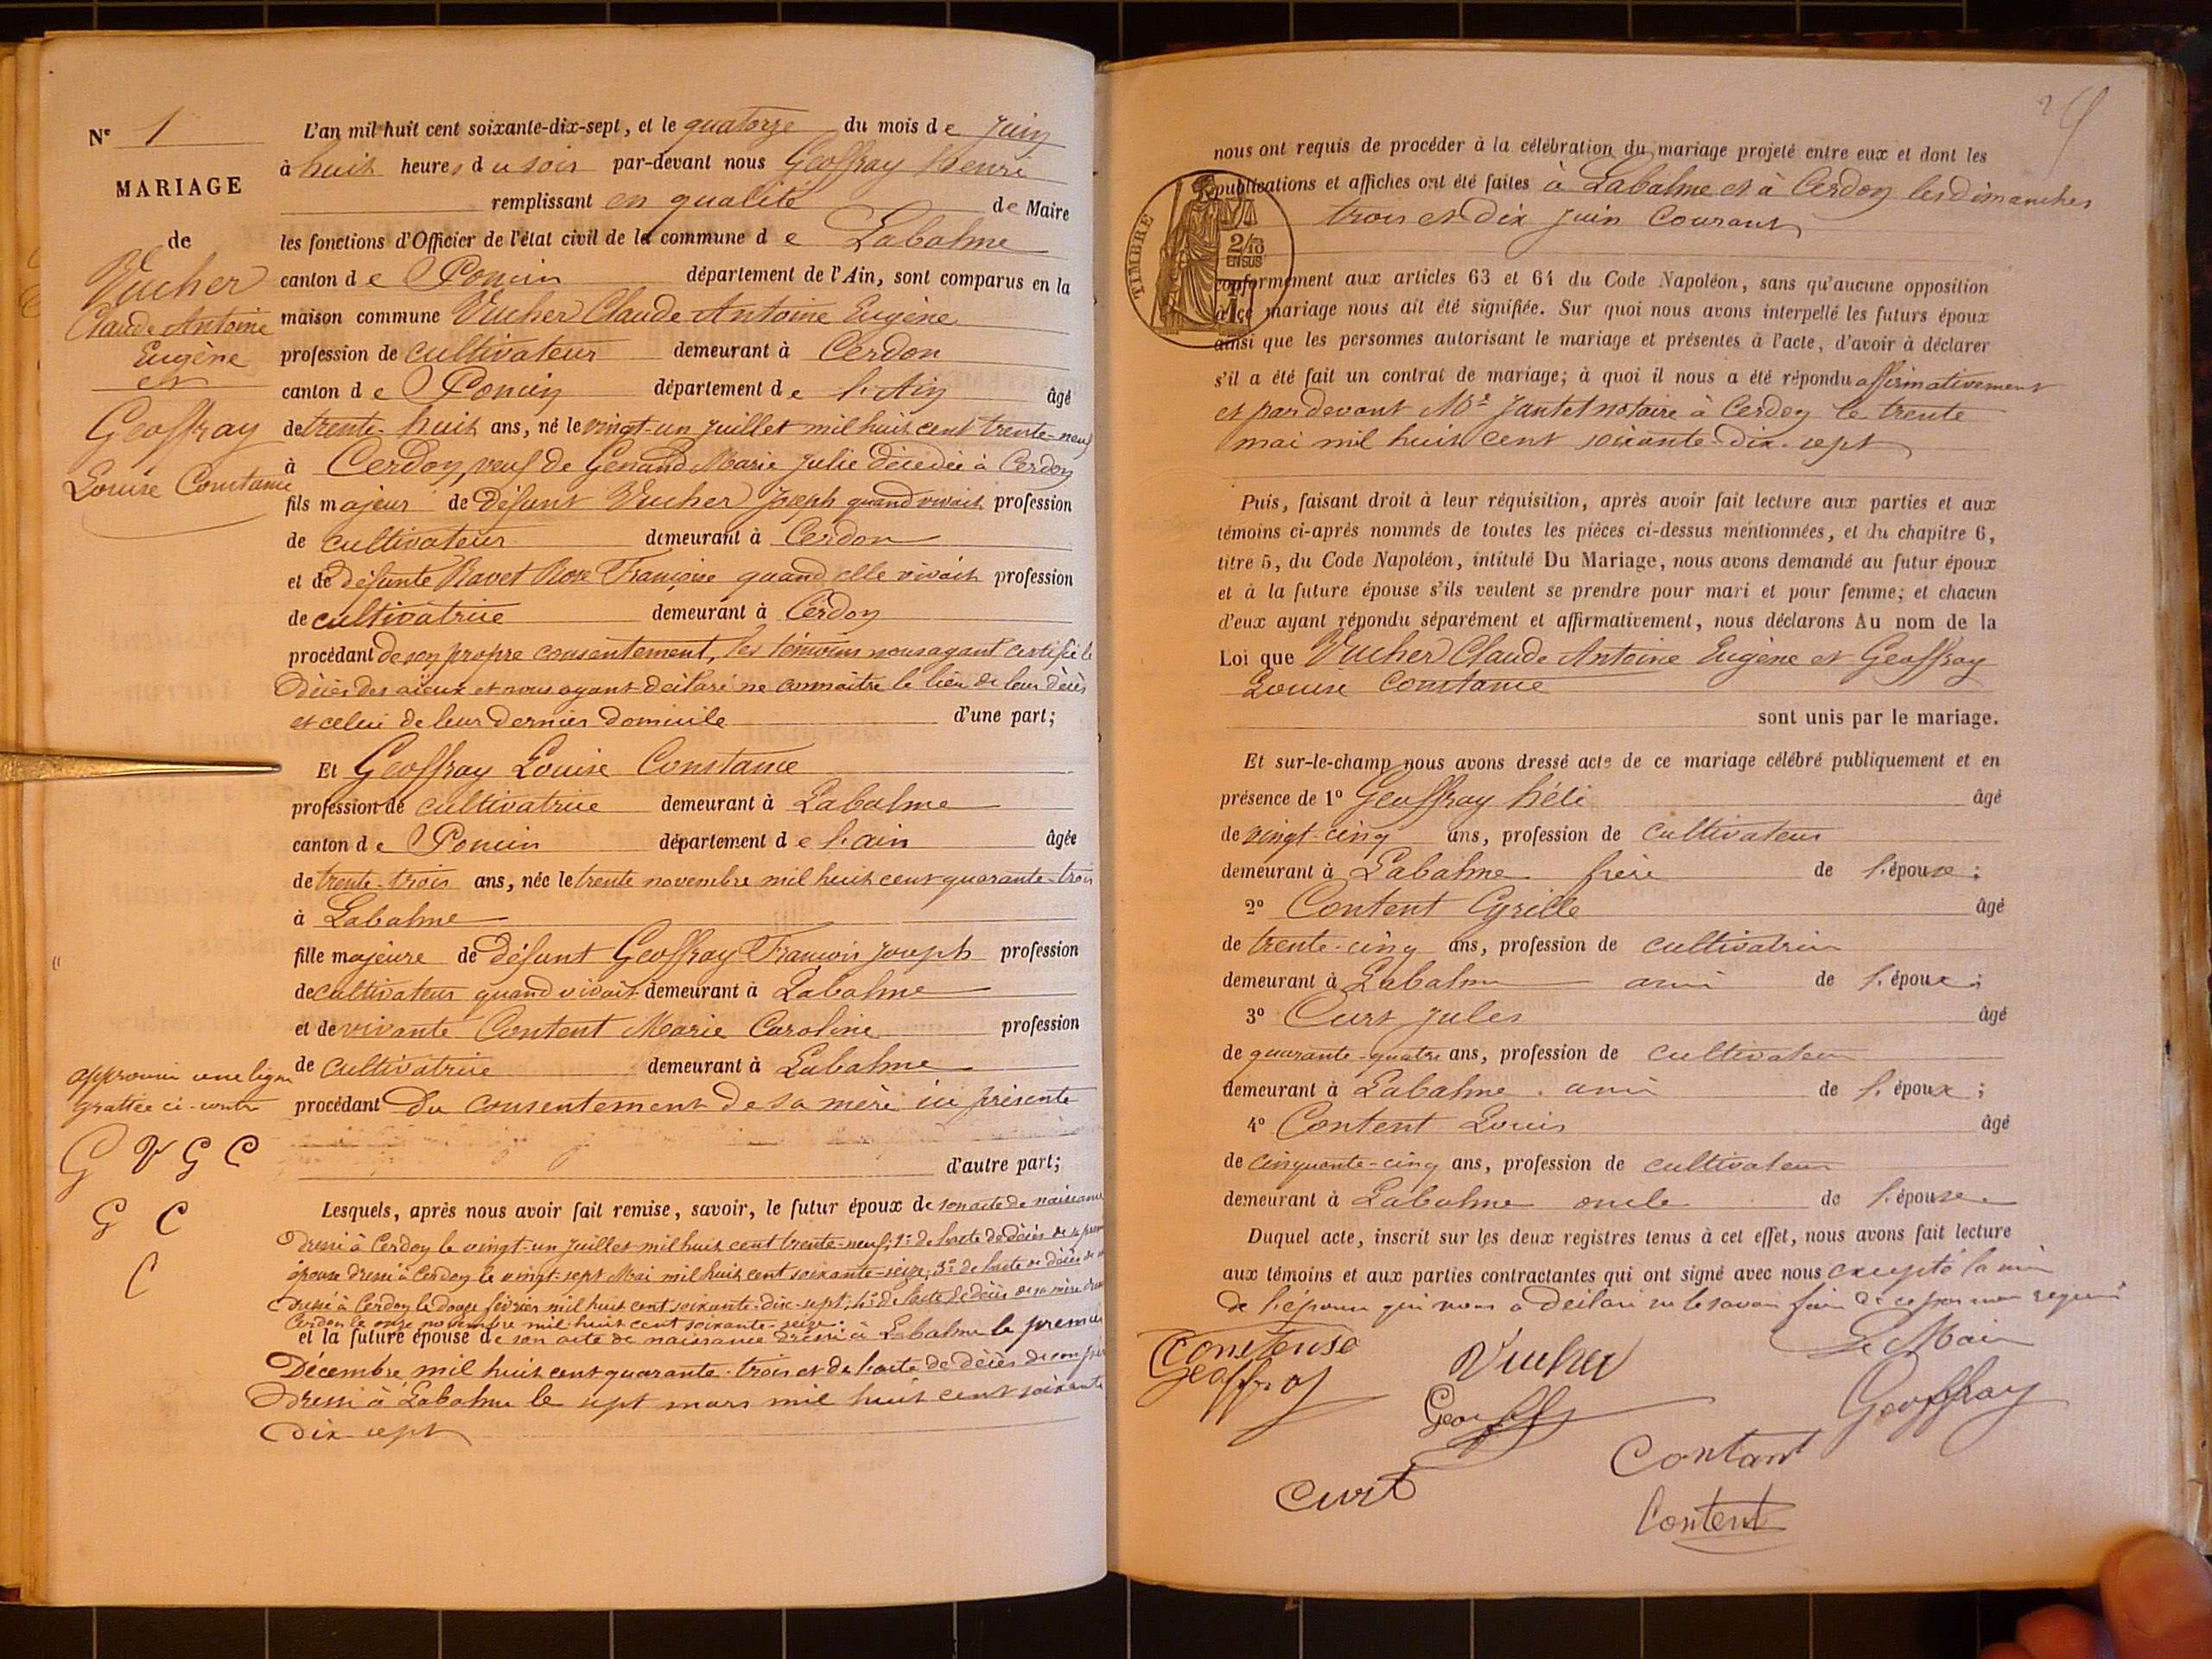 N° 1
MARIAGE
de
Vucher
Claude Antoine
Eugène
et
Geoffray
Louise Constance
L'an mil huit cent soixante-dix-sept, et le quatorze du mois de juin
à huit heures du soir par-devant nous Geoffray henri
remplissant en qualité de Maire
les fonctions d'Officier de l'état civil de la commune de Labalme
canton de Poncin département de l'Ain, sont comparus en la
maison commune Vucher Claude Antoine Eugène
profession de cultivateur demeurant à Cerdon
canton de Poncin département de l'Ain âgé
de trente-huit ans, né le vingt-un juillet mil huit cent trente-neuf
à Cerdon, veuf de Genand Marie Julie décédée à Cerdon
fils majeur de défunt Vucher Joseph quand vivait profession
de cultivateur demeurant à Cerdon
et de défunte Ravet Rose Françoise quand elle vivait profession
de cultivatrice demeurant à Cerdon
procédant de son propre consentement, les témoins nous ayant certifié le
décès des aïeux et nous ayant déclaré ne connaître le lieu de leur décès
et celui de leur dernier domicile d'une part;
Et Geoffray Louise Constance
profession de cultivatrice demeurant à Labalme
canton de Poncin département de l'ain âgée
de trente-trois ans, née le trente novembre mil huit cent quarante-trois
à Labalme
fille majeure de défunt Geoffray François Joseph profession
de cultivateur quand vivait demeurant à Labalme
et de vivante Content Marie Caroline profession
de cultivatrice demeurant à Labalme
procédant du consentement de sa mère ici présente
d'autre part;
approuvé une ligne
grattée ci-contre
G V G C
G C
C
Lesquels, après nous avoir fait remise, savoir, le futur époux de son acte de naissance
dressé à Cerdon le vingt-un juillet mil huit cent trente-neuf; de l'acte de décès de sa
épouse dressé à Cerdon le vingt-sept Mai mil huit cent soixante-seize; 3° de l'acte de décès de
dressé à Cerdon le douze février mil huit cent soixante-dix-sept; 4° de l'acte de décès de sa mère
Cerdon le onze novembre mil huit cent soixante-seize.
et la future épouse de son acte de naissance dressé à Labalme le premier
Décembre mil huit cent quarante-trois et de l'acte de décès de son père
dressé à Labalme le sept mars mil huit cent soixante
dix-sept
nous ont requis de procéder à la célébration du mariage projeté entre eux et dont les
publications et affiches ont été faites à Labalme et à Cerdon les dimanches
trois et dix juin courant
TIMBRE
conformément aux articles 63 et 64 du Code Napoléon, sans qu'aucune opposition
à ce mariage nous ait été signifiée. Sur quoi nous avons interpellé les futurs époux
ainsi que les personnes autorisant le mariage et présentes à l'acte, d'avoir à déclarer
s'il a été fait un contrat de mariage; à quoi il nous a été répondu affirmativement
et par devant Me Jantet notaire à Cerdon le trente
mai mil huit cent soixante-dix-sept
Puis, faisant droit à leur réquisition, après avoir fait lecture aux parties et aux
témoins ci-après nommés de toutes les pièces ci-dessus mentionnées, et du chapitre 6,
titre 5, du Code Napoléon, intitulé Du Mariage, nous avons demandé au futur époux
et à la future épouse s'ils veulent se prendre pour mari et pour femme; et chacun
d'eux ayant répondu séparément et affirmativement, nous déclarons Au nom de la
Loi que Vucher Claude Antoine Eugène et Geoffray
Louise Constance
sont unis par le mariage.
Et sur-le-champ nous avons dressé acte de ce mariage célébré publiquement et en
présence de 1° Geoffray héli âgé
de vingt-cinq ans, profession de cultivateur
demeurant à Labalme frère de l'épouse;
2° Content Cyrille âgé
de trente-cinq ans, profession de cultivateur
demeurant à Labalme ami de l'époux;
3° Curt Jules âgé
de quarante-quatre ans, profession de cultivateur
demeurant à Labalme ami de l'époux;
4° Content Louis âgé
de cinquante-cinq ans, profession de cultivateur
demeurant à Labalme oncle de l'épouse
Duquel acte, inscrit sur les deux registres tenus à cet effet, nous avons fait lecture
aux témoins et aux parties contractantes qui ont signé avec nous excepté la mère
de l'épouse qui nous a déclaré ne le savoir faire de ce par nous requis
Constense
Geoffray
Vucher
Le Maire
Geoffray
Geoffray
Contant
Curt
Content